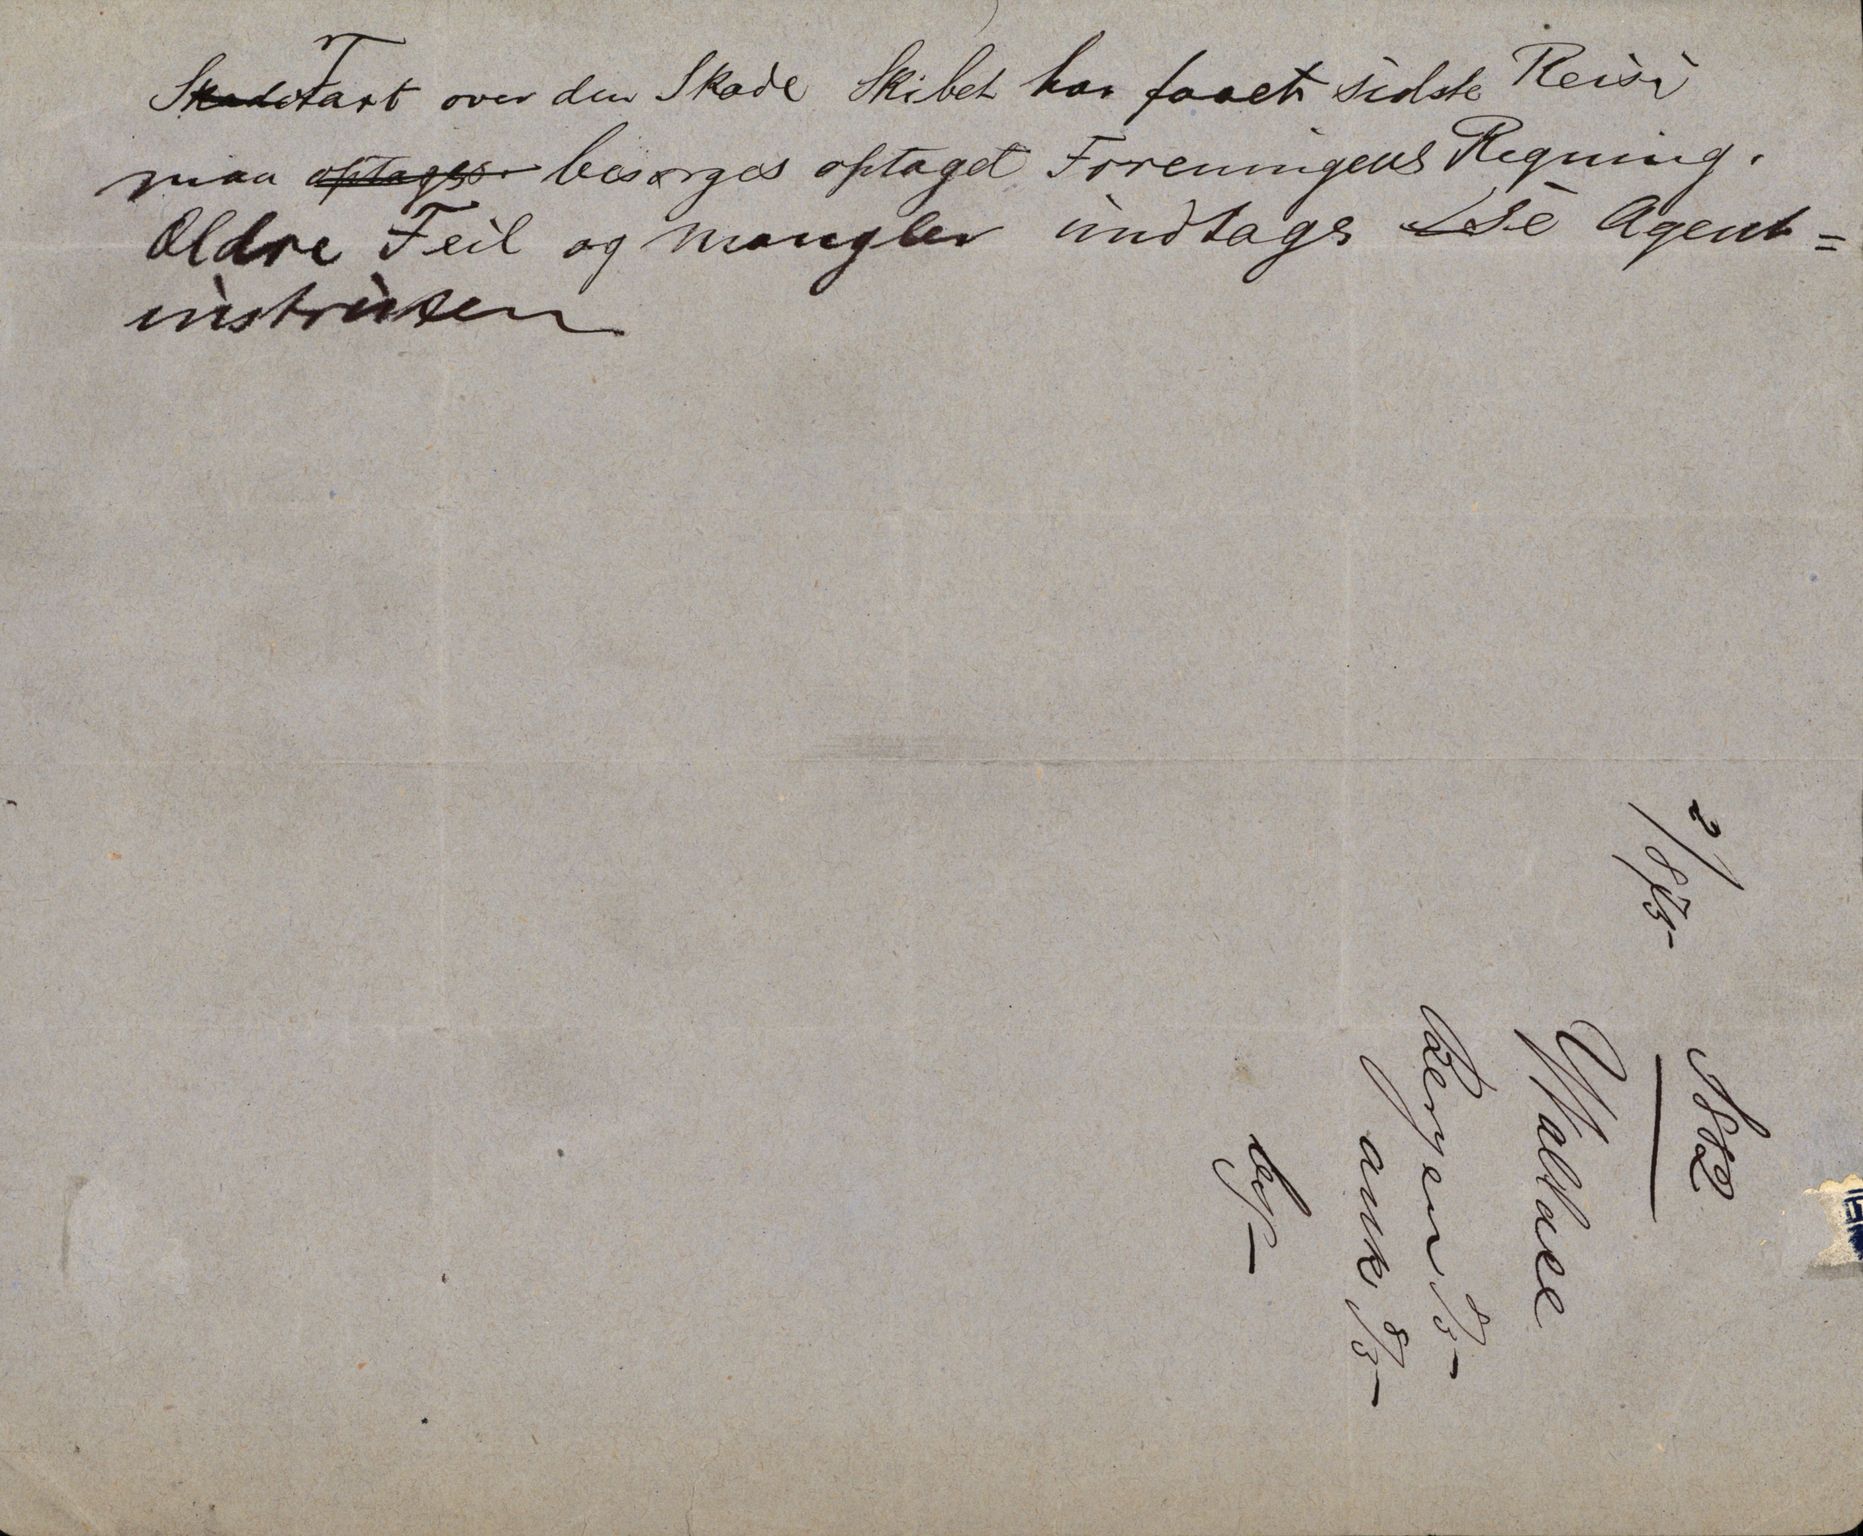 Taxt over den Skade Skibet har faaet sidste Reise
maa optages besørges optaget Foreningens Regning.
Ældre Feil og mangler undtages Se Agent=
instruxen
2/8 83-
1882
Bergen 8/3-
ank 8/3-